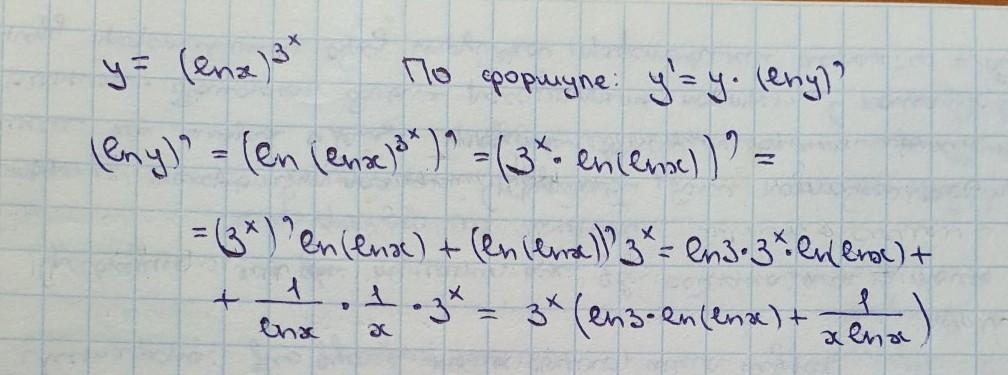 y = (ln x)^{3^x} По формуле: y' = y · (ln y)'
(ln y)' = (ln (ln x)^{3^x})' = (3^x · ln(ln x))' =
= (3^x)' ln(ln x) + (ln(ln x))' 3^x = ln 3 · 3^x · ln(ln x) +
+ \frac{1}{ln x} · \frac{1}{x} · 3^x = 3^x (ln 3 · ln(ln x) + \frac{1}{x ln x})